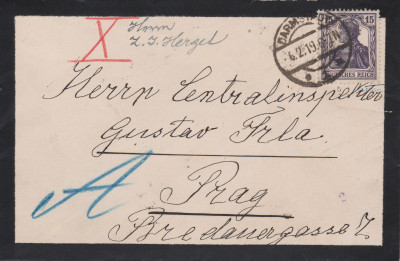 X
Herrn
Z. I. Herget
DARMSTADT
6.2.19.
15
DEUTSCHES REICH
Herrn Centralinspektor
Gustav Irla
Prag
Bredauergasse 7
A